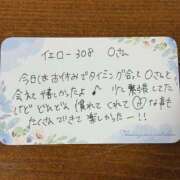 イエロー308 Oさん
今日はお休みでタイミング合ってOさんと
会えて嬉しかったよ♪ 少し緊張してた
けどどんどん慣れてくれて な事
たくさんできて楽しかったー!!